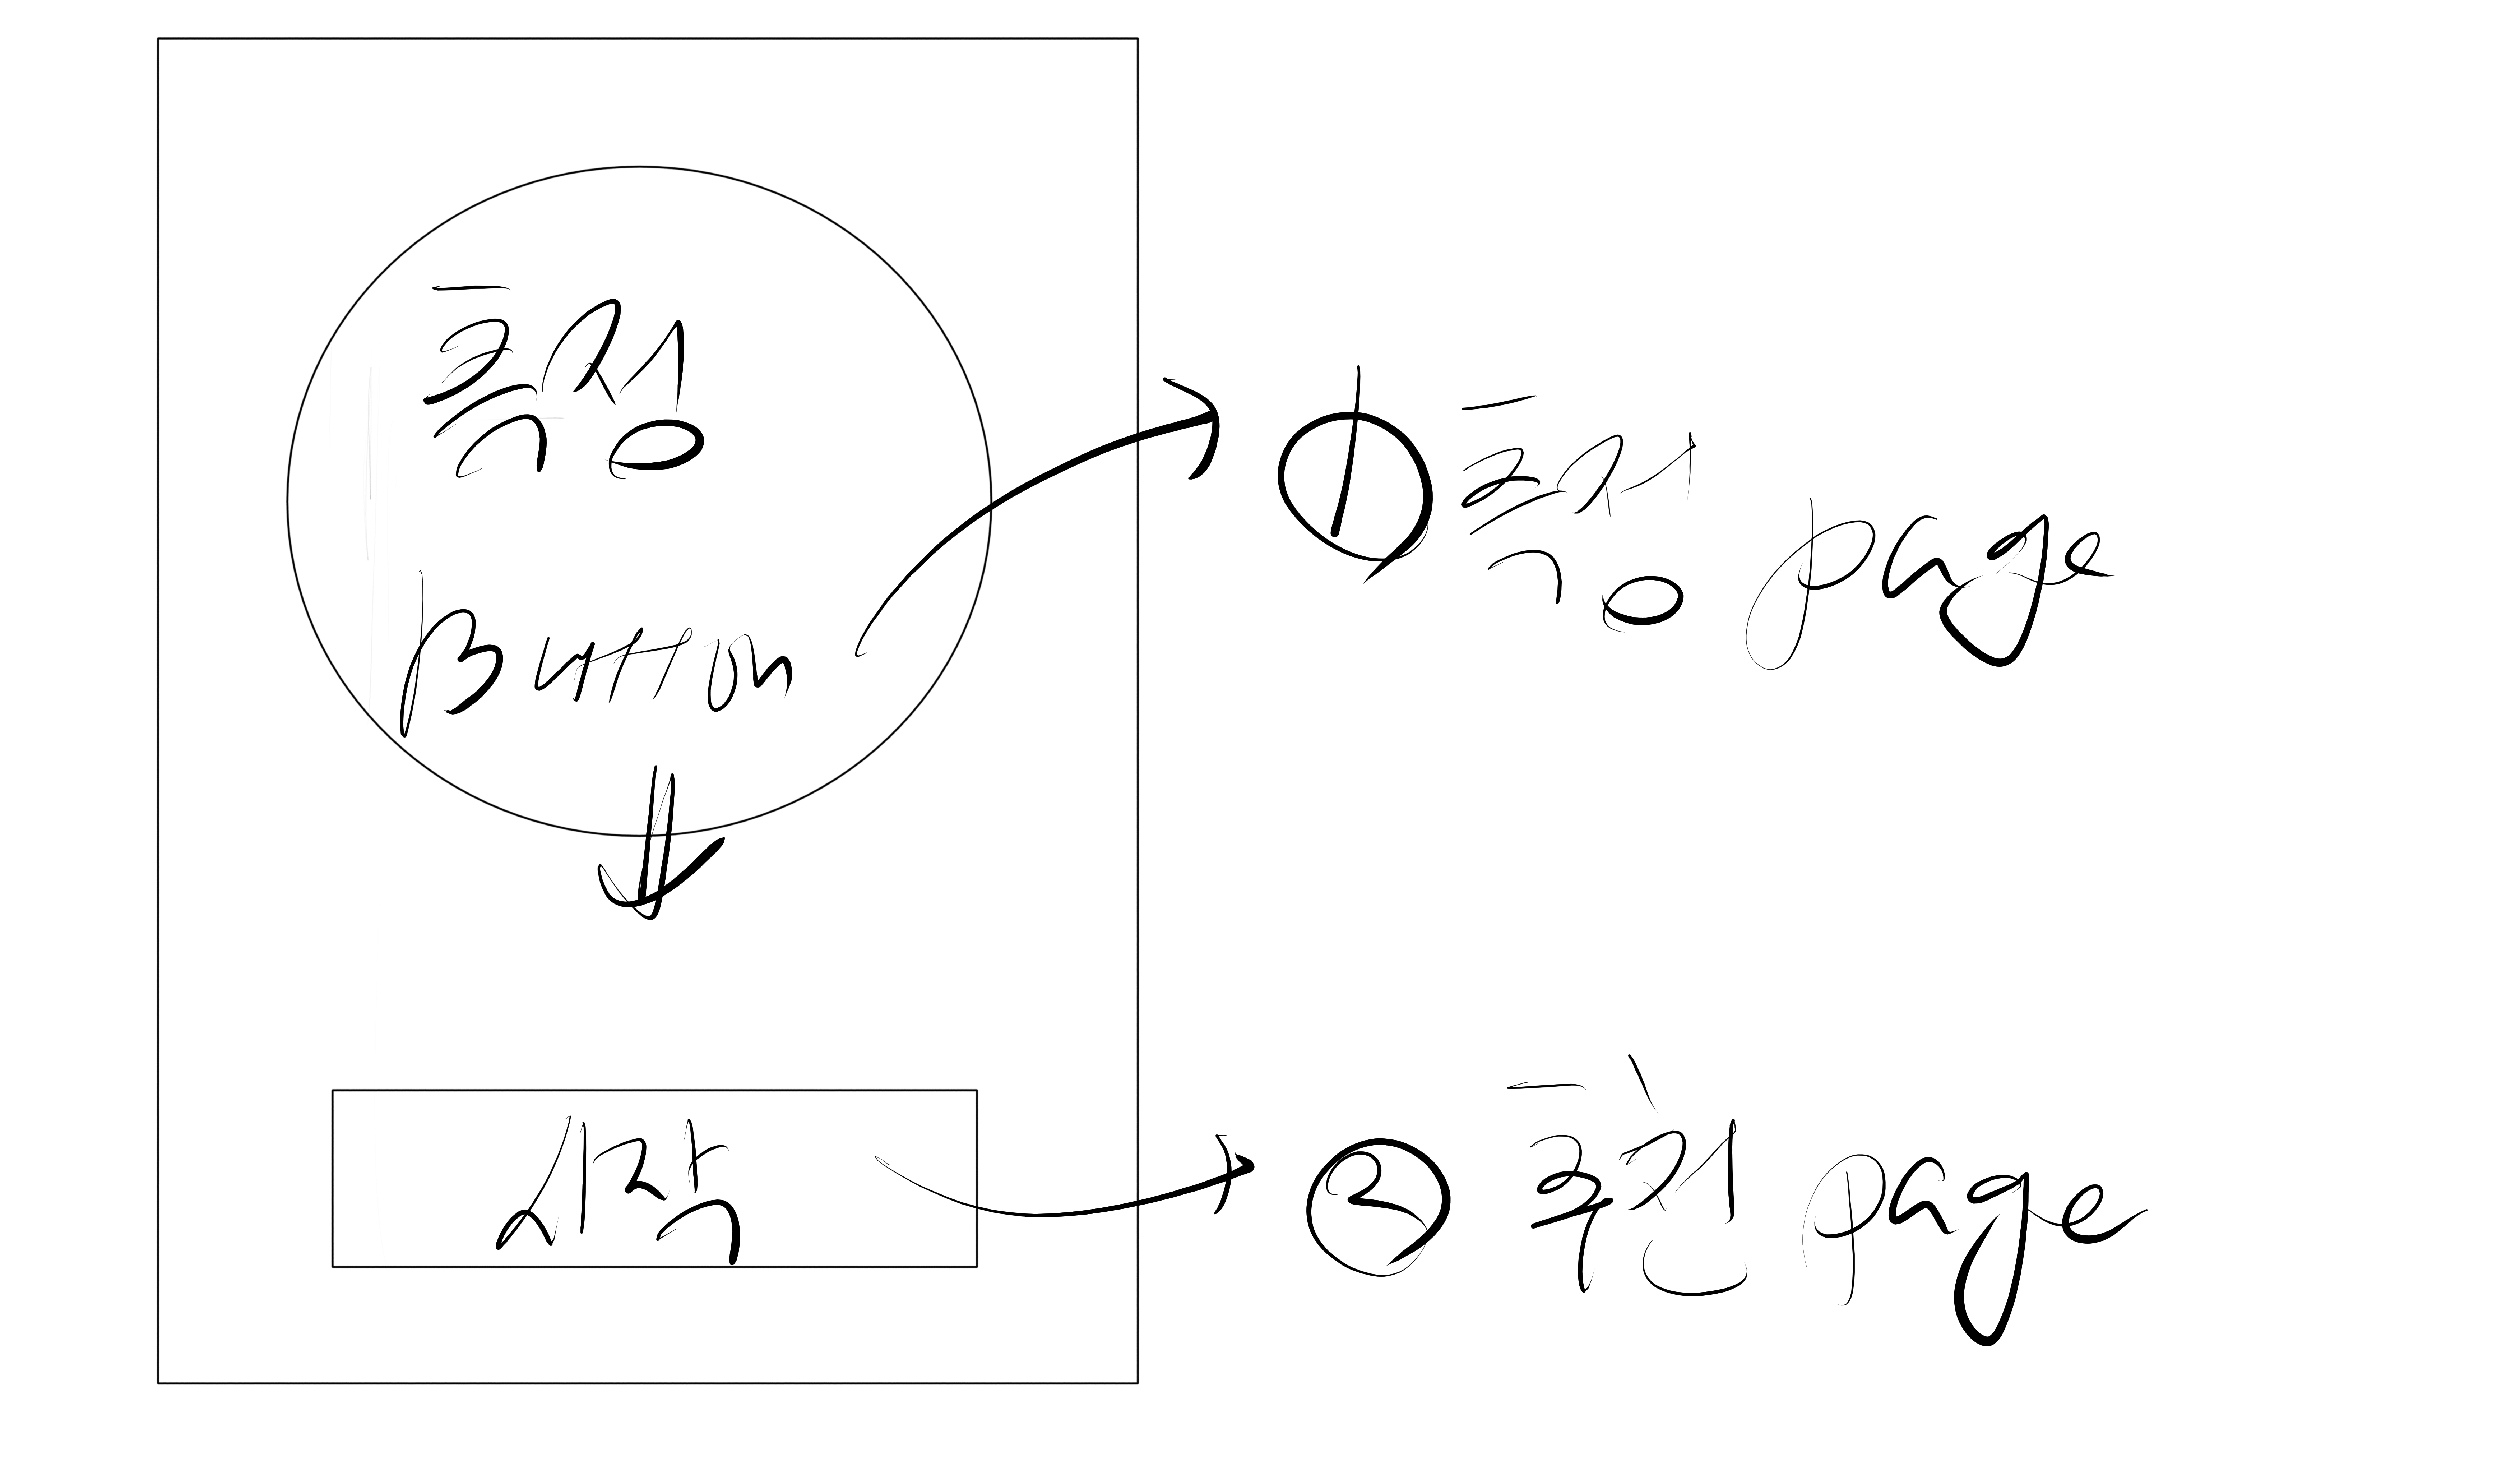 측정
Button
① 측정 page
시작
② 추천 page